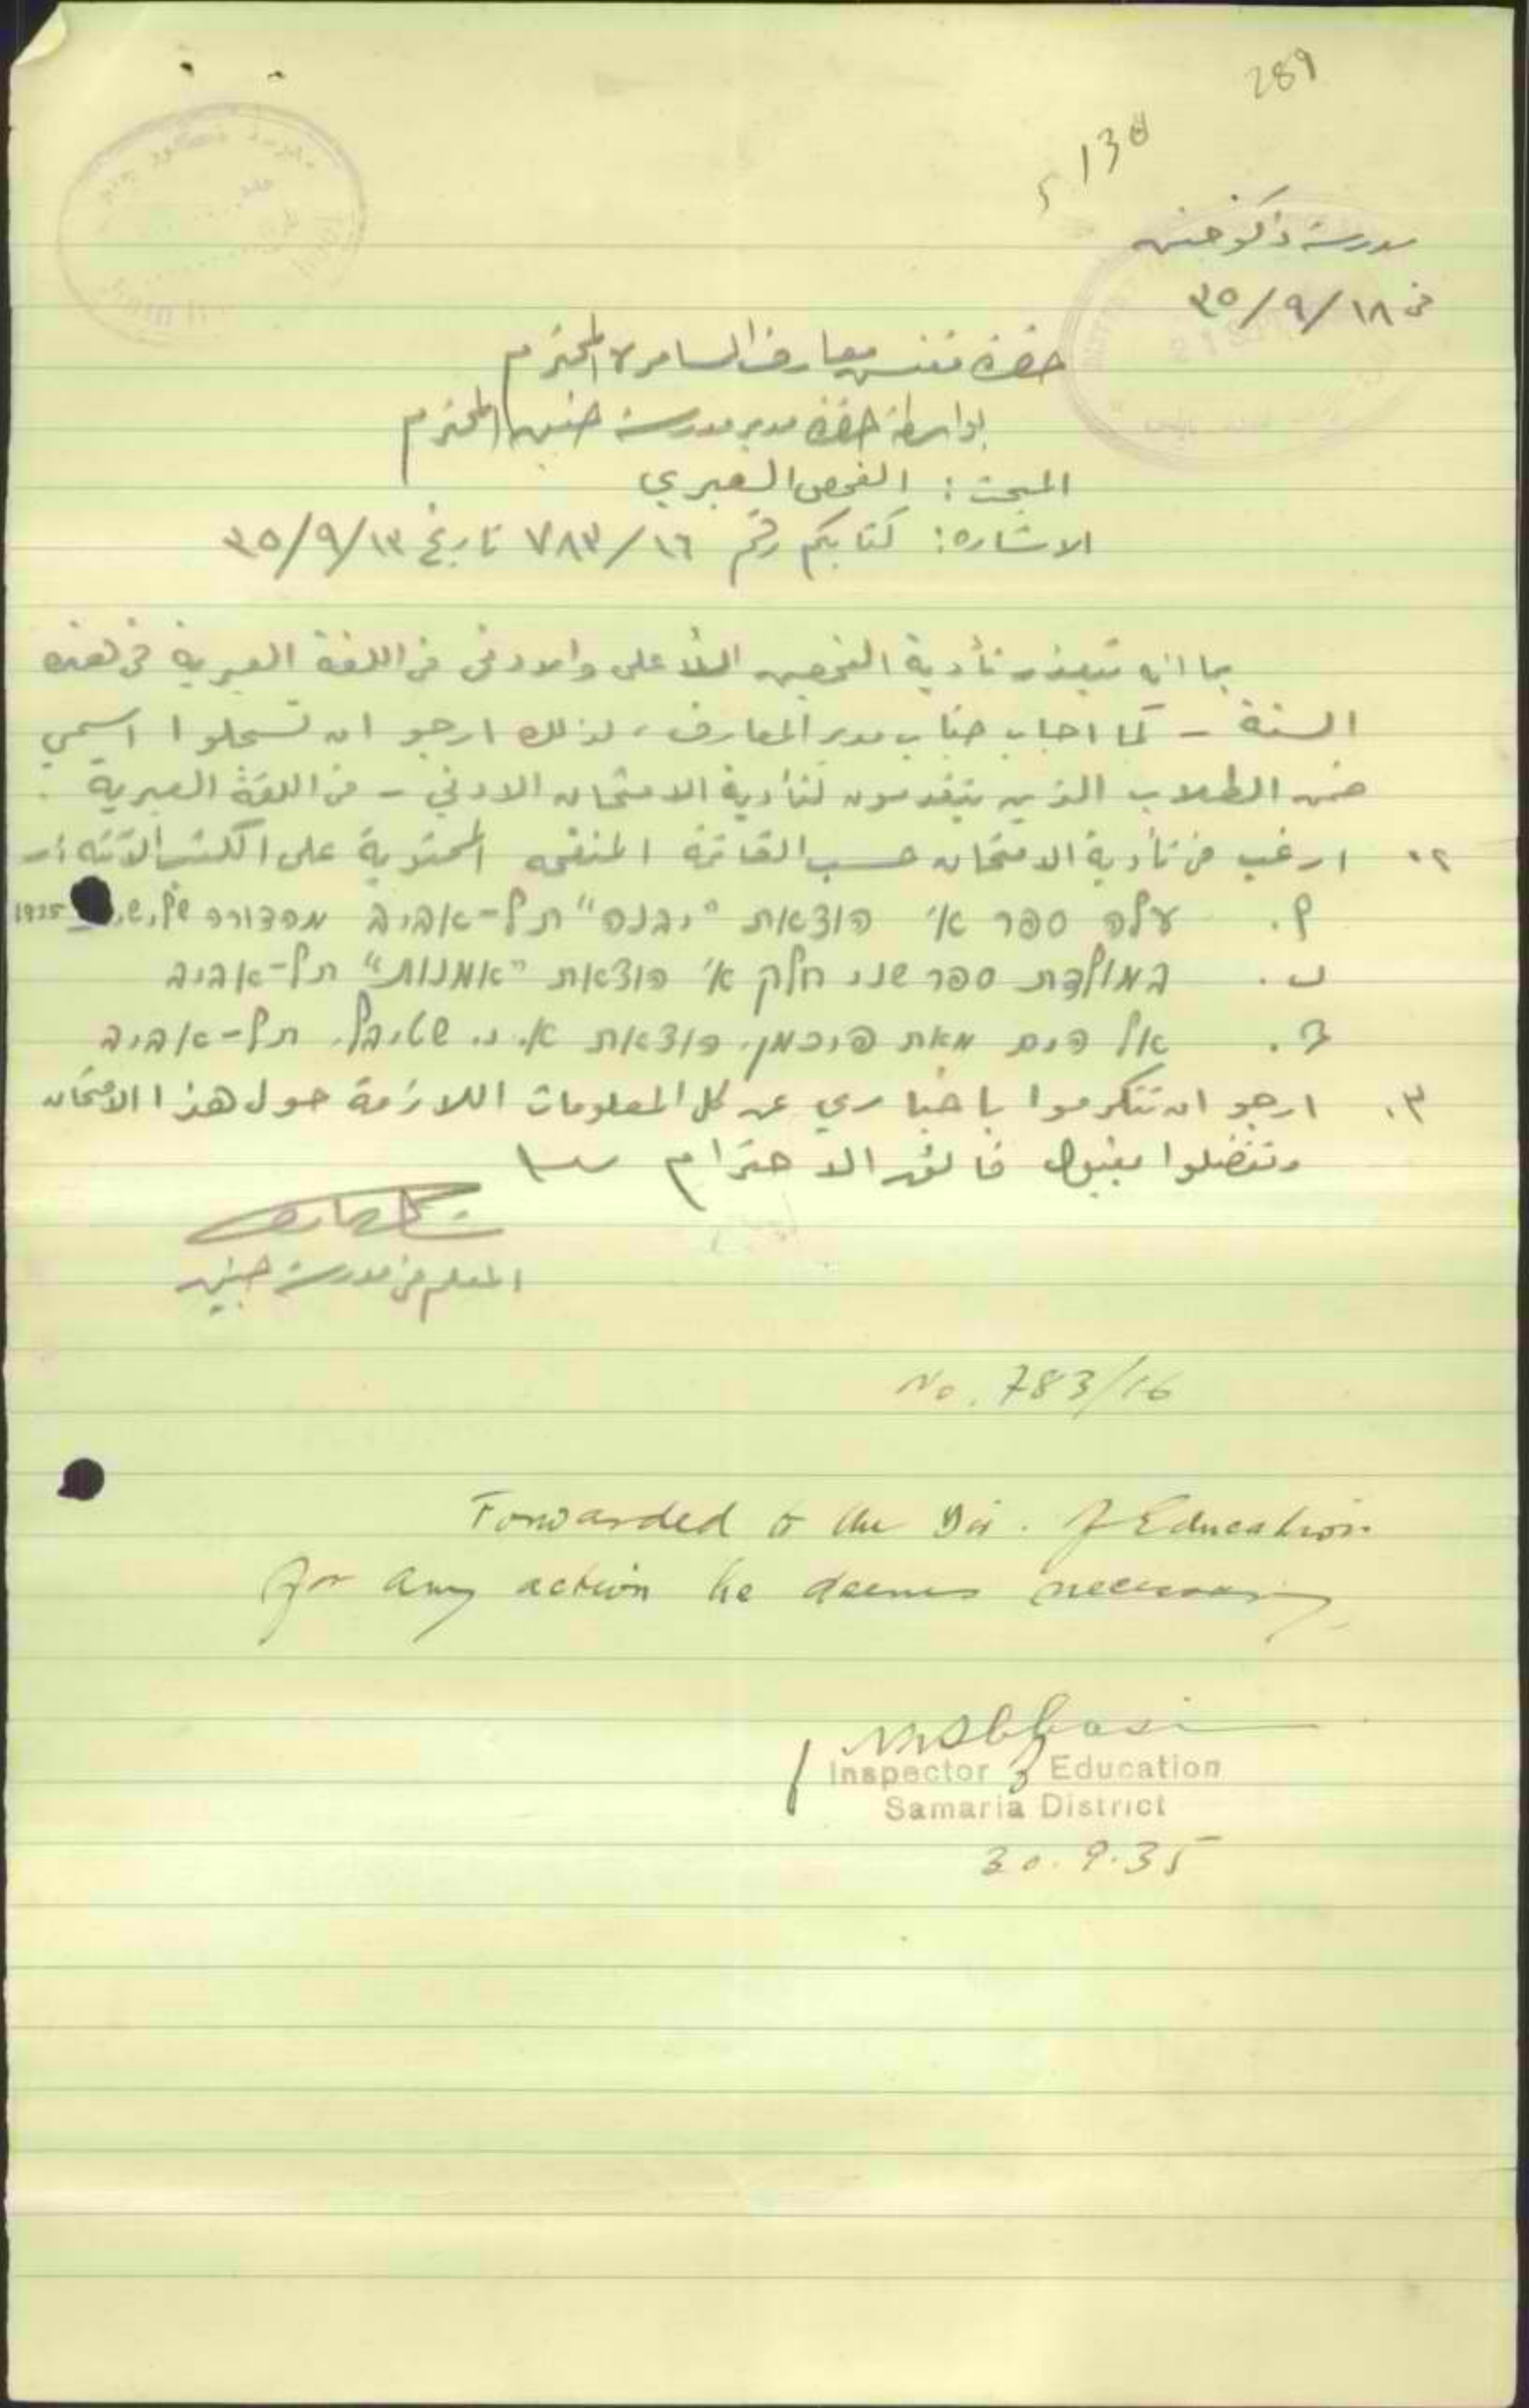 289
138
مدرسة ذكور جنين
في ١٨/٩/٣٥
حضرة مفتش معارف السامرة المحترم
بواسطة حضرة مدير مدرسة جنين المحترم
المبحث: الفحص العبري
الاشارة: كتابكم رقم ٧٨٣/١٦ تاريخ ١٣/٩/٣٥
بما انه تتعذر تأدية الفحصين الأعلى والادنى في اللغة العبرية في هذه
السنة - كما اجاب جناب مدير المعارف، لذلك ارجو ان تسجلوا اسمي
ضمن الطلاب الذين يتقدمون لتأدية الامتحان الادنى - في اللغة العبرية.
٢. ارغب في تأدية الامتحان حسب القائمة المنقحه المحتوية على الكتب الآتيه :-
أ. עלה ספר א' הוצאת "יבנה" תל-אביב מהדורה 1935
ب. המולדת ספר שני חלק א' הוצאת "אמנות" תל-אביב
ج. אל הים מאת הוכמן. הוצאת א. י. שטיבל. תל-אביב
٣. ارجو ان تتكرموا باخباري عن كل المعلومات اللازمة حول هذا الامتحان
وتفضلوا بقبول فائق الاحترام
المعلم في مدرسة جنين
No. 783/16
Forwarded to the Dir. of Education
for any action he deems necessary
Inspector of Education
Samaria District
30.9.35